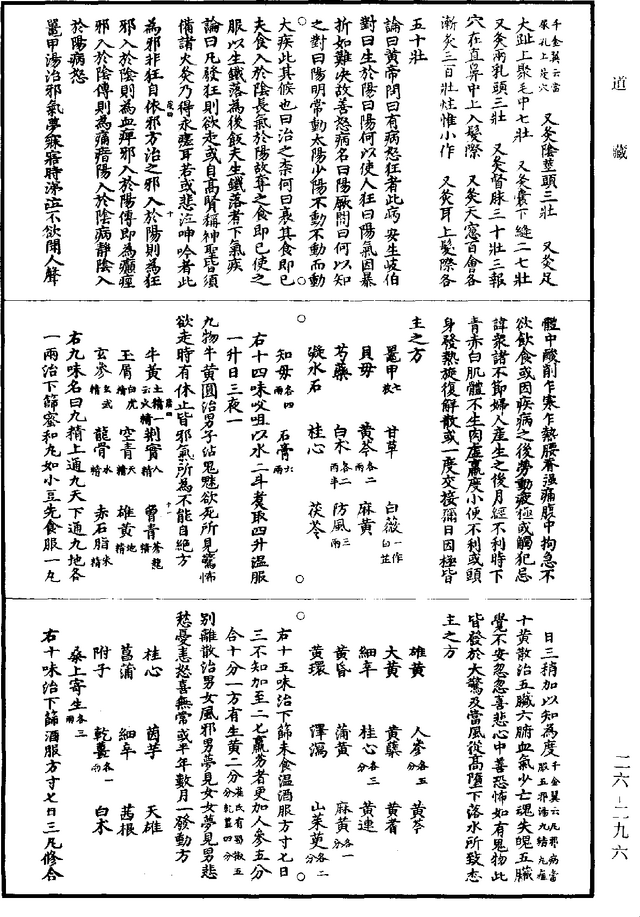 道藏
千金翼云當
尿孔上是穴　又灸陰莖頭三壯　又灸足
大趾上聚毛中七壯　又灸囊下縫二七壯
又灸兩乳頭三壯　又灸督脉三十壯三報
穴在直鼻中上入髮際　又灸天窓百會各
漸灸三百壯炷惟小作　又灸耳上髮際各
五十壯
論曰黃帝問曰有病怒狂者此病安生岐伯
對曰生於陽曰陽何以使人狂曰陽氣因暴
折如難決故善怒病名曰陽厥問曰何以知
之對曰陽明常動太陽少陽不動不動而動
大疾此其候也曰治之柰何曰衰其食即已
夫食入於陰長氣於陽故奪之食即已使之
服以生鐵落為後飯夫生鐵落者下氣疾
論曰凡發狂則欲走或自高賢稱神聖皆須
備諸火灸乃得永瘥耳若或悲泣呻吟者此
為邪非狂自依邪方治之邪入於陽則為狂
邪入於陰則為血痺邪入於陽傳即為癲痙
邪入於陰傳則為痛瘖陽入於陰病靜陰入
於陽病怒
鼈甲湯治邪氣夢寐寤時涕泣不欲聞人聲
體中酸削乍寒乍熱腰脊強痛腹中拘急不
欲飲食或因疾病之後勞動疲極或觸犯忌
諱衆諸不節婦人產生之後月經不利時下
青赤白肌體不生肉虛羸瘦小便不利或頭
身發熱旋復解散或一度交接彌日困極皆
主之方
鼈甲七枚　甘草　白薇一作白芷
貝母　黃芩各二兩　麻黃
芍藥　白术各二兩半　防風三兩
凝水石　桂心　茯苓
知母各四兩　石膏六兩
右十四味㕮咀以水二斗煑取四升溫服
一升日三夜一
九物牛黃圓治男子沾鬼魅欲死所見驚怖
欲走時有休止皆邪氣所為不能自絕方
牛黃土精一云火精　荆實人精　曾青蒼龍精
玉屑白虎精　空青天精　雄黃地精
玄參玄武精　龍骨水精　赤石脂朱雀精
右九味名曰九精上通九天下通九地各
一兩治下篩蜜和丸如小豆先食服一丸
日三稍加以知為度千金翼云凡邪病當服五邪湯九精丸瘥
十黃散治五臟六腑血氣少亡魂失魄五臟
覺不安忽忽喜悲心中善恐怖如有鬼物此
皆發於大驚及當風從高墮下落水所致悉
主之方
雄黃　人參各五分　黃芩
大黃　黃蘗　黃耆
細辛　桂心各三分　黃連
黃昏　蒲黃　麻黃各一分
黃環　澤瀉　山茱萸各二分
右十五味治下篩未食溫酒服方寸七日
三不知加至二七羸劣者更加人參五分
合十分一方有生黃二分崔氏有蜀椒五分乾薑四分
別離散治男女風邪男夢見女女夢見男悲
愁憂恚怒喜無常或半年數月一發動方
桂心　茵芋　天雄
菖蒲　細辛　茜根
附子　乾薑各一兩　白术
桑上寄生各三兩
右十味治下篩酒服方寸七日三凡修合
二六—二九六